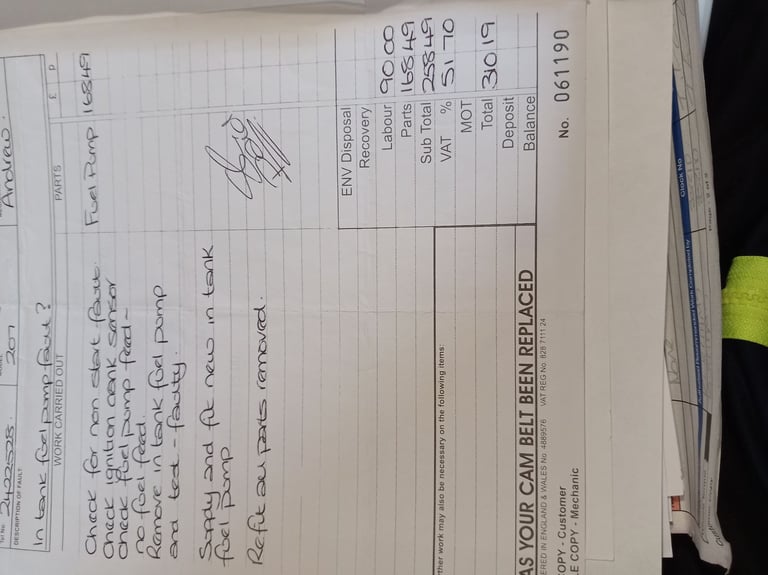 Tel No. 2422528. 207 Andrew.
DESCRIPTION OF FAULT:
In tank fuel pump fault?
WORK CARRIED OUT PARTS £ P
Check for non start fault. Fuel Pump 168.49
Check ignition crank sensor
Check fuel pump feed -
no fuel feed.
Remove in tank fuel pump
and test - faulty.
Supply and fit new in tank
fuel pump
Refit all parts removed.
ENV Disposal
Recovery
Labour 90.00
Parts 168.49
Sub Total 258.49
VAT % 51.70
MOT
Total 310.19
Deposit
Balance
ther work may also be necessary on the following items:
AS YOUR CAM BELT BEEN REPLACED
ERED IN ENGLAND & WALES No. 4889576 VAT REG No. 828 7111 24
OPY - Customer
E COPY - Mechanic
No. 061190
Clock No